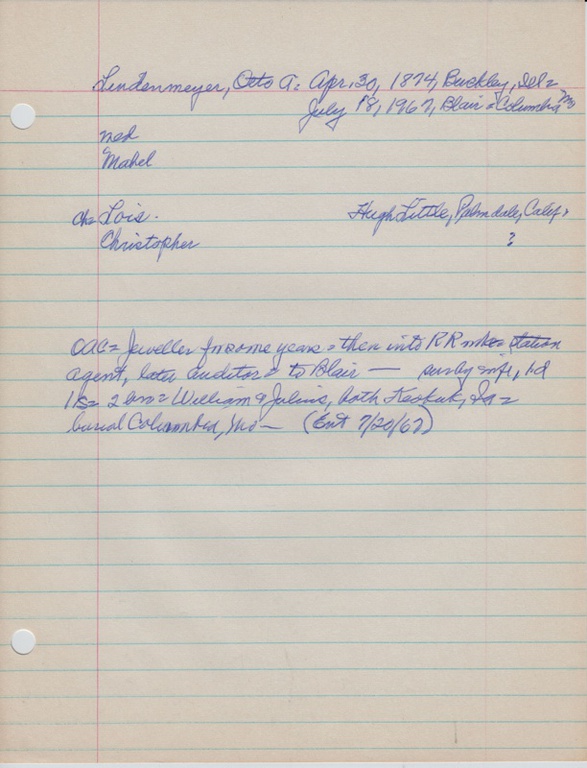 Lindenmeyer, Otto A: Apr. 30, 1874, Buckley, Ill =
July 18, 1967, Blair = Columbia Mo
med
Mabel
ch= Lois. Hugh Little, Palmdale, Calif.
Christopher ?
occ = Jeweller for some years = then into RR station
agent, later auditor = to Blair — surv by wife, 1d
1s = 2 bro = William & Julius, both Keokuk, Ia =
burial Columbia, Mo — (Ent 7/20/67)